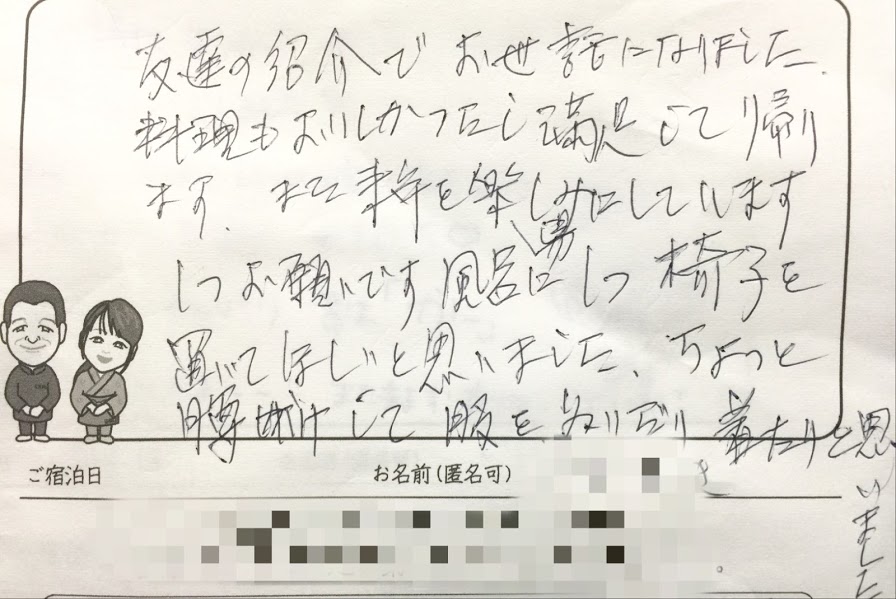 友達の紹介でお世話になりました。
料理もおいしかったし満足して帰り
ます、また来年を楽しみにしています
1つお願いです風呂に1つ椅子を
男
置いてほしいと思いました、ちょっと
腰掛けして服をぬいだり着たりと思
いました
ご宿泊日
お名前（匿名可）